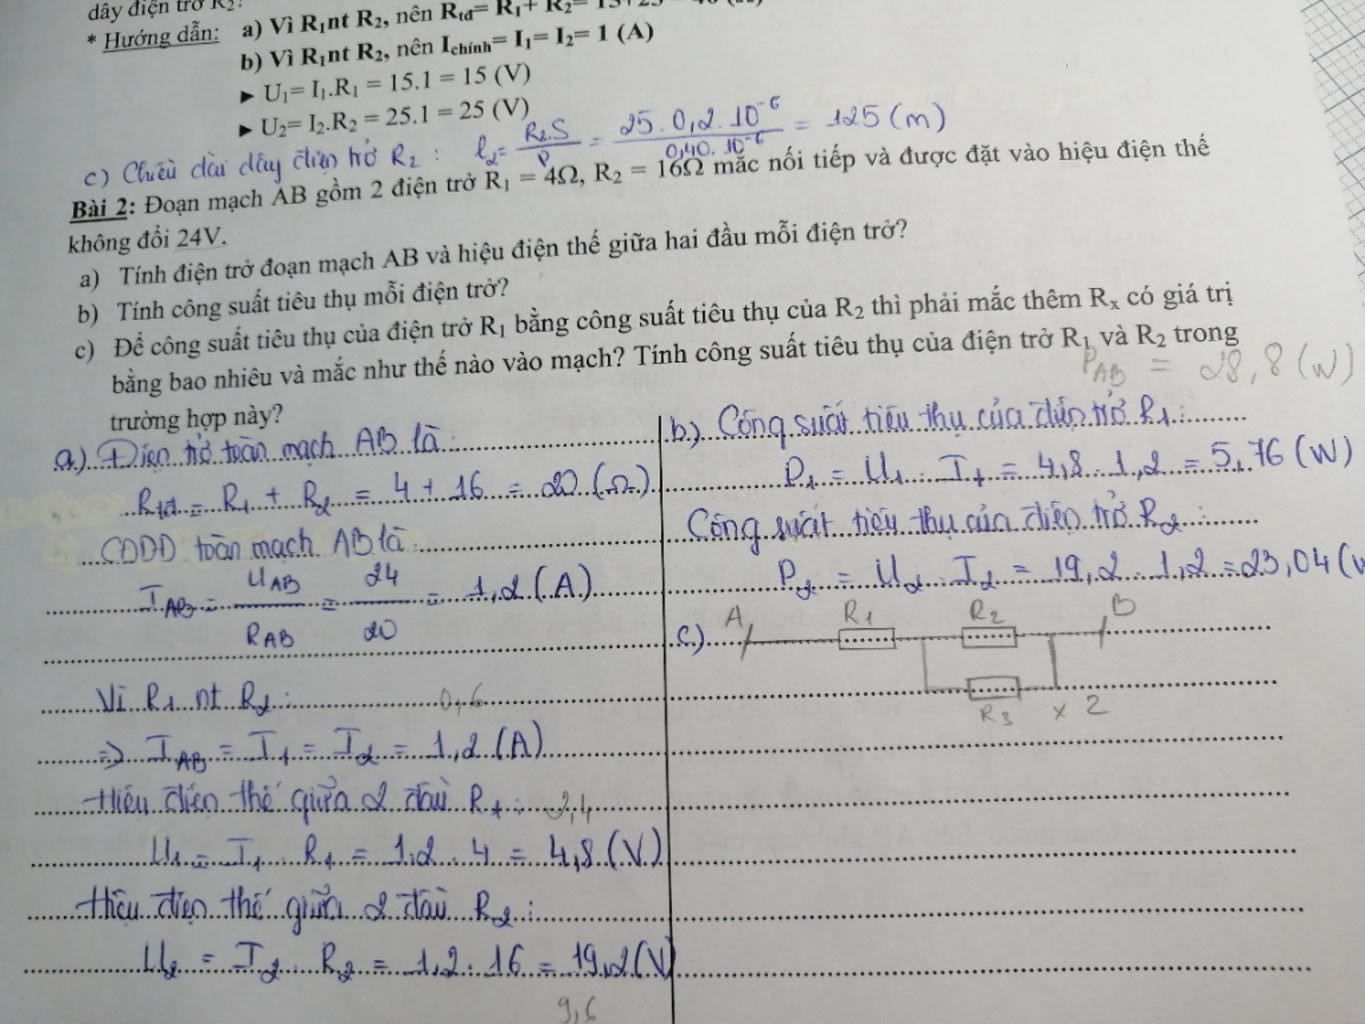 dây điện trở R₂?
* Hướng dẫn: a) Vì R₁nt R₂, nên Rtđ= R₁+ R₂=
b) Vì R₁nt R₂, nên Ichính= I₁= I₂= 1 (A)
► U₁= I₁.R₁ = 15.1 = 15 (V)
► U₂= I₂.R₂ = 25.1 = 25 (V)
c) Chiều dài dây điện trở R₂ : l₂= R₂.S / ρ = 25.0,2.10⁻⁶ / 0,40.10⁻⁶ = 125 (m)
Bài 2: Đoạn mạch AB gồm 2 điện trở R₁ = 4Ω, R₂ = 16Ω mắc nối tiếp và được đặt vào hiệu điện thế
không đổi 24V.
a) Tính điện trở đoạn mạch AB và hiệu điện thế giữa hai đầu mỗi điện trở?
b) Tính công suất tiêu thụ mỗi điện trở?
c) Để công suất tiêu thụ của điện trở R₁ bằng công suất tiêu thụ của R₂ thì phải mắc thêm Rₓ có giá trị
bằng bao nhiêu và mắc như thế nào vào mạch? Tính công suất tiêu thụ của điện trở R₁ và R₂ trong
trường hợp này?
P_AB = 28,8 (W)
a) Điện trở toàn mạch AB là:
Rtđ = R₁ + R₂ = 4 + 16 = 20 (Ω)
CĐDĐ toàn mạch AB là
I_AB = U_AB / R_AB = 24 / 20 = 1,2 (A)
Vì R₁ nt R₂ :
0,6
=> I_AB = I₁ = I₂ = 1,2 (A)
Hiệu điện thế giữa 2 đầu R₁ :
2,4
U₁ = I₁ . R₁ = 1,2 . 4 = 4,8 (V)
Hiệu điện thế giữa 2 đầu R₂ :
U₂ = I₂ . R₂ = 1,2 . 16 = 19,2 (V)
9,6
b) Công suất tiêu thụ của điện trở R₁ :
P₁ = U₁ . I₁ = 4,8 . 1,2 = 5,76 (W)
Công suất tiêu thụ của điện trở R₂ :
P₂ = U₂ . I₂ = 19,2 . 1,2 = 23,04
c) A R₁ R₂ B
R₃ x 2